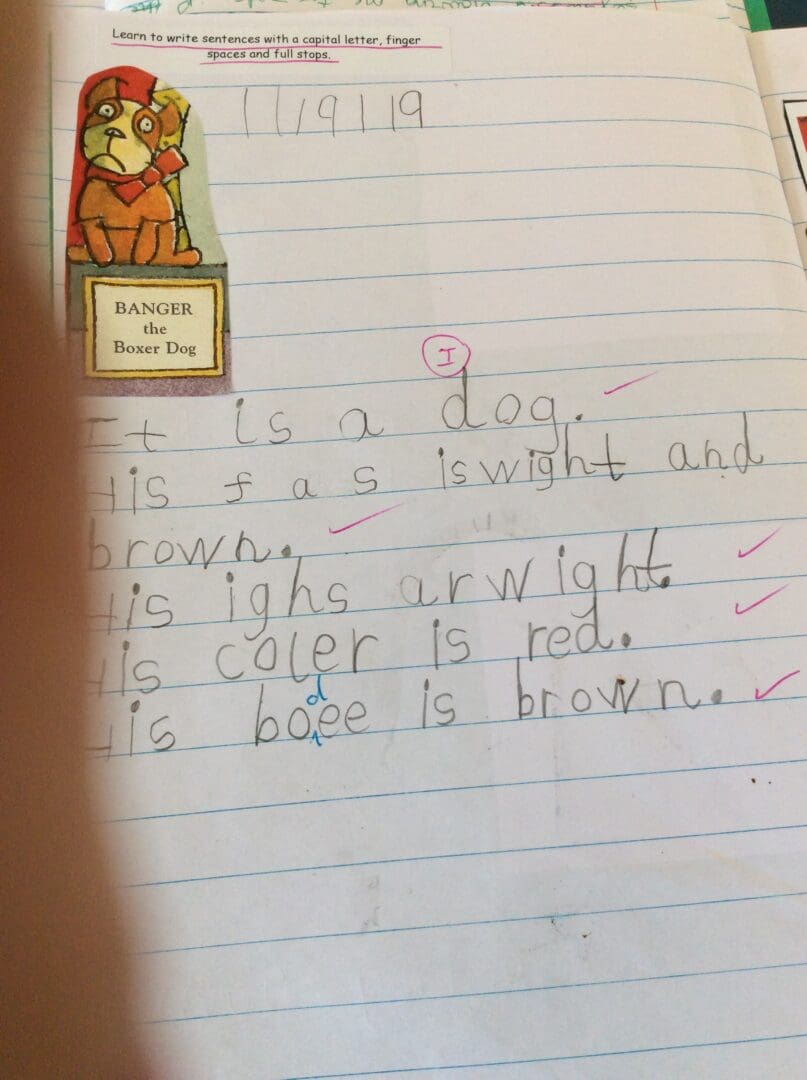 Learn to write sentences with a capital letter, finger
spaces and full stops.
11/9/19
BANGER
the
Boxer Dog
I
It is a dog.
His fas is wight and
brown.
His ighs ar wight.
His coler is red.
d
His boee is brown.